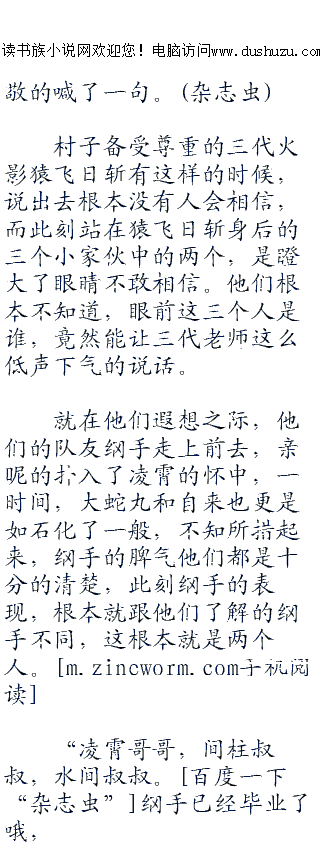 读书族小说网欢迎您！电脑访问www.dushuzu.com
敬的喊了一句。(杂志虫)
村子备受尊重的三代火
影猿飞日斩有这样的时候，
说出去根本没有人会相信，
而此刻站在猿飞日斩身后的
三个小家伙中的两个，是瞪
大了眼睛不敢相信。他们根
本不知道，眼前这三个人是
谁，竟然能让三代老师这么
低声下气的说话。
就在他们遐想之际，他
们的队友纲手走上前去，亲
昵的扑入了凌霄的怀中，一
时间，大蛇丸和自来也更是
如石化了一般，不知所措起
来，纲手的脾气他们都是十
分的清楚，此刻纲手的表
现，根本就跟他们了解的纲
手不同，这根本就是两个
人。[m.zincworm.com手机阅
读]
“凌霄哥哥，间柱叔
叔，水间叔叔。[百度一下
“杂志虫”]纲手已经毕业了
哦，